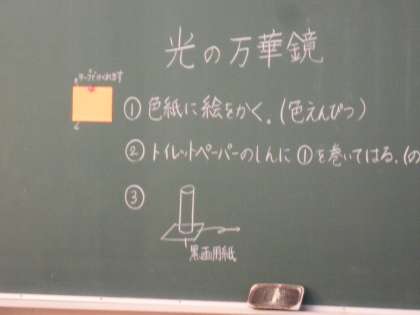 光の万華鏡
①色紙に絵をかく.(色えんぴつ)
②トイレットペーパーのしんに①を巻いてはる.(の
③
黒画用紙